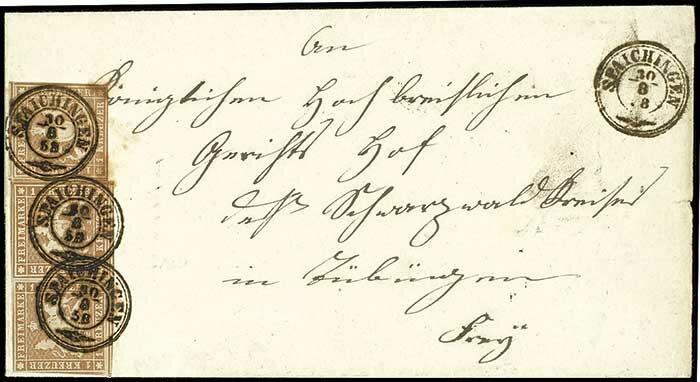 An
Königlichen Hochpreißlichen
Gerichts Hof
deß Schwarzwald Kreises
in Tübingen
Frey
SPAICHINGEN
30
8
58
SPAICHINGEN
30
8
58
SPAICHINGEN
30
8
58
SPAICHINGEN
30
8
58
FREIMARKE
1 KREUZER
FREIMARKE
KREUZER
FREIMARKE
KREUZER
1 KREUZER